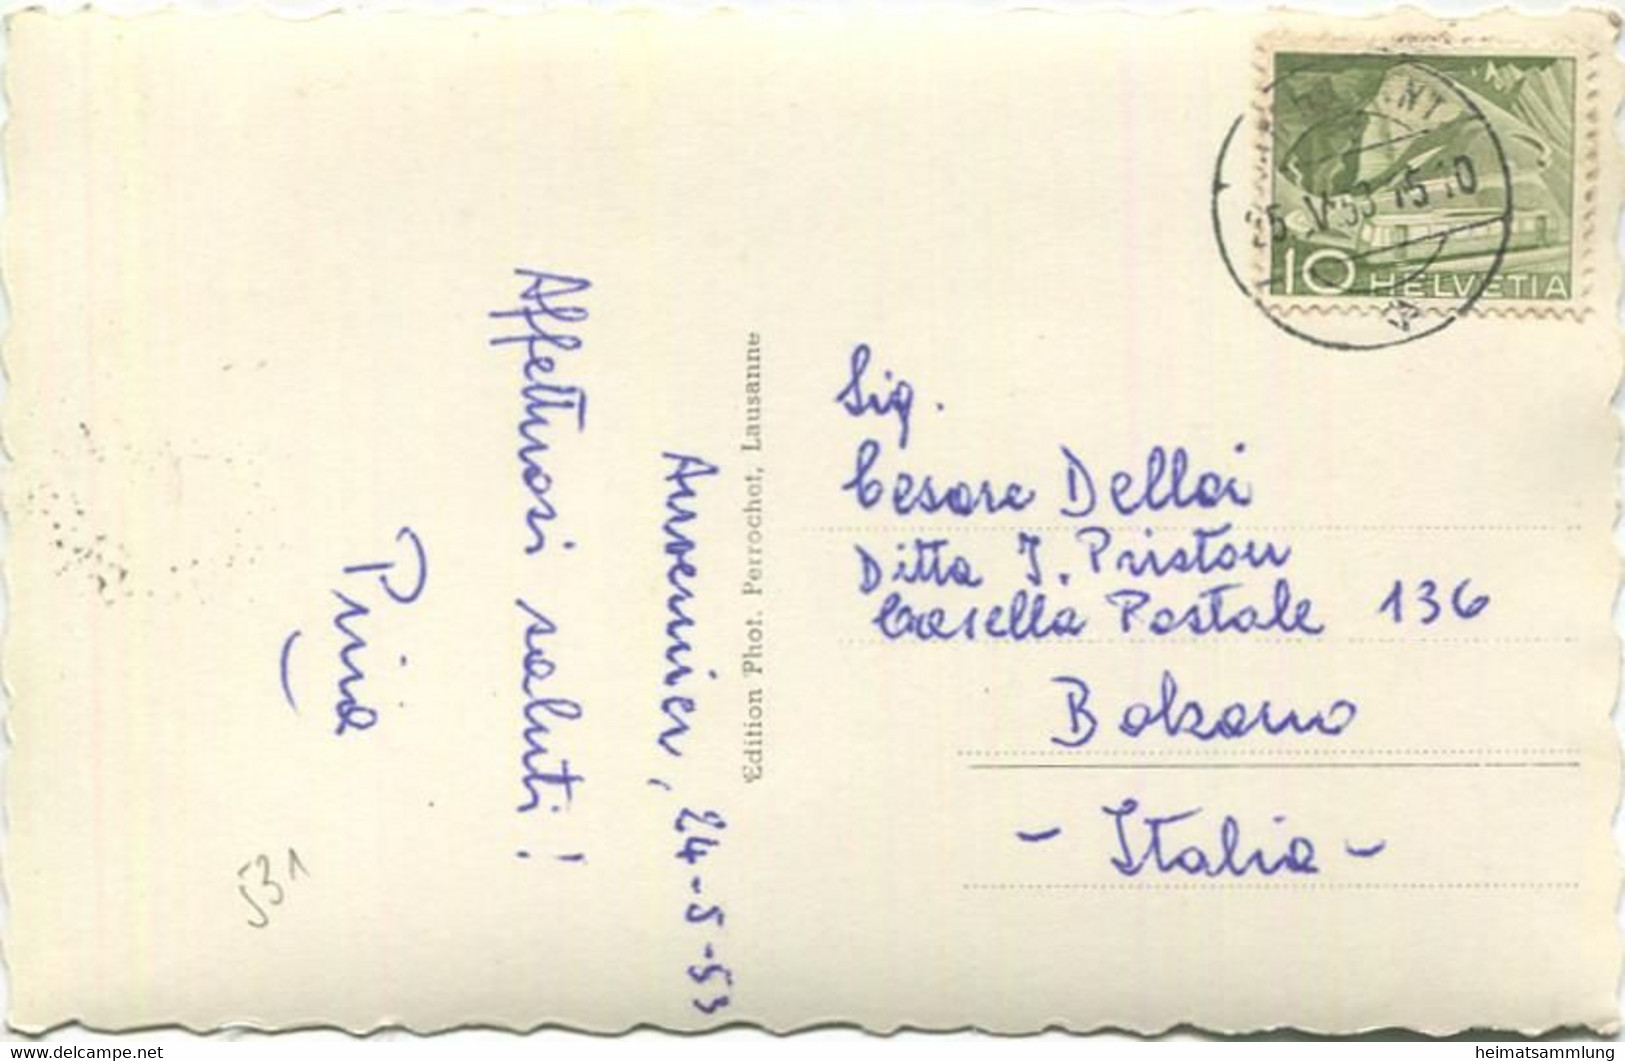 Auvernier, 24-5-53
Affettuosi saluti!
Pina
531
Edition Phot. Perrochot, Lausanne
10 HELVETIA
V 53 15 10
Sig.
Cesare Dellai
Ditta J. Pristou
Casella Postale 136
Bolzano
- Italia -
www.delcampe.net
heimatsammlung